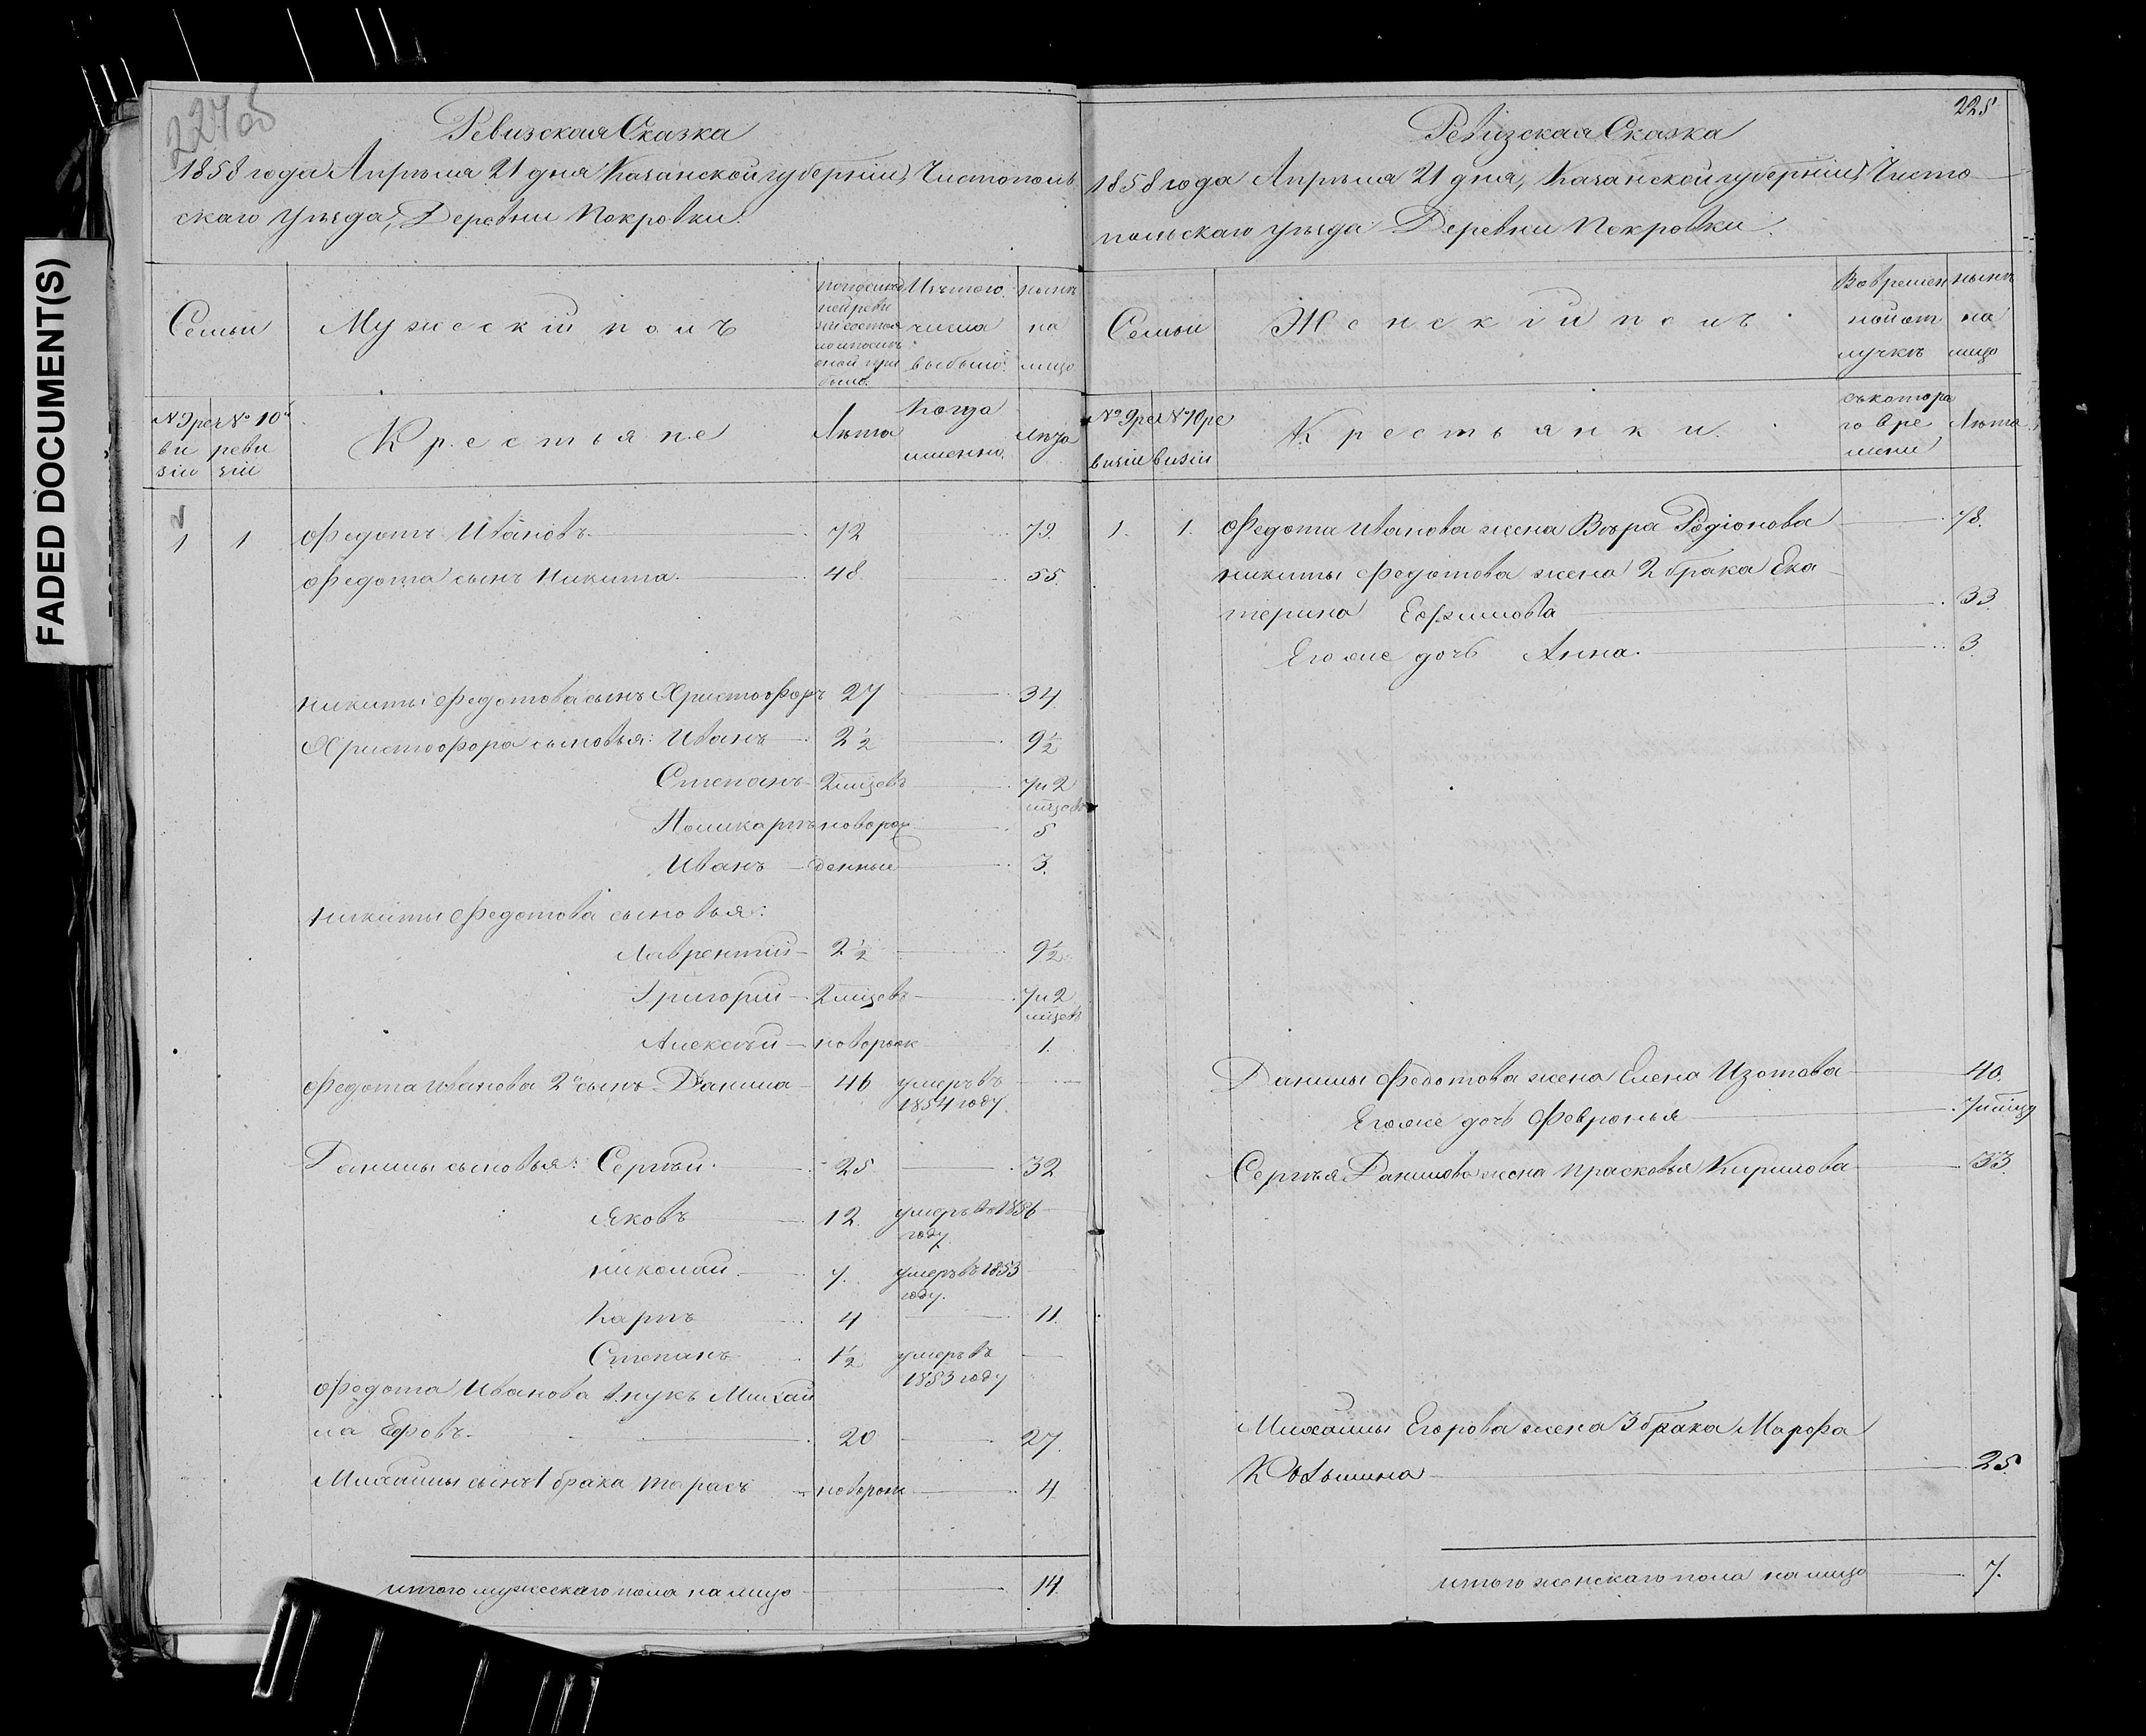 FADED DOCUMENT(S)
Ревизская Сказка
1858 года Апрѣля 21 дня Казанской губерніи, Чистополь
скаго уѣзда, Деревни Покровки.
Семьи
Мужескій полъ
Изъ того числа выбыло.
нынѣ на лицо
№ 9 ре ви зіи
№ 10й реви зіи
Крестьяне
Лѣта
Когда именно.
Лѣта
1 1 Федотъ Ивановъ 72 79.
Федота сынъ Никита. 48 55
Никиты Федотова сынъ Христофоръ 27 34
Христофора сыновья: Иванъ 2½ 9½
Степанъ 2 мѣцевъ 7 и 2 мѣцевъ
Поликарпъ новорож 5
Иванъ денные 3.
Никиты Федотова сыновья:
Лаврентій 2½ 9½
Григорій 2 мѣцевъ 7 и 2 мѣцевъ
Алексѣй новорож 1.
Федота Иванова 2й сынъ Данила 46 умеръ въ 1854 году
Данилы сыновья: Сергѣй 25 32
Яковъ 12 умеръ въ 1856 году
Николай 7. умеръ въ 1853 году.
Карпъ 4 11.
Степанъ 1½ умеръ въ 1853 году
Федота Иванова внукъ Михай
ла Ефровъ. 20 27.
Михайлы сынъ 1 брака Тарасъ новорож 4
итого мужескаго пола на лицо 14.
225
Ревизская Сказка
1858 года Апрѣля 21 дня, Казанской губерніи, Чисто
польскаго уѣзда Деревни Покровки.
Семьи
Женскій полъ
Во времен ной от лучкѣ
нынѣ на лицо
№ 9 ре визіи
№ 10 ре визіи
Крестьянки.
съ котора го вре мени
Лѣта
1. 1. Федота Иванова жена Вѣра Родіонова 78.
Никиты Федотова жена 2 брака Ека
терина Ефимова 33
Его же дочь Анна. 3
Данилы Федотова жена Елена Изотова 40.
Его же дочь Февронья
Сергѣя Данилова жена Прасковья Кирилова 33
Михайлы Егорова жена 3 брака Марфа
25
итого женскаго пола на лицо 7.